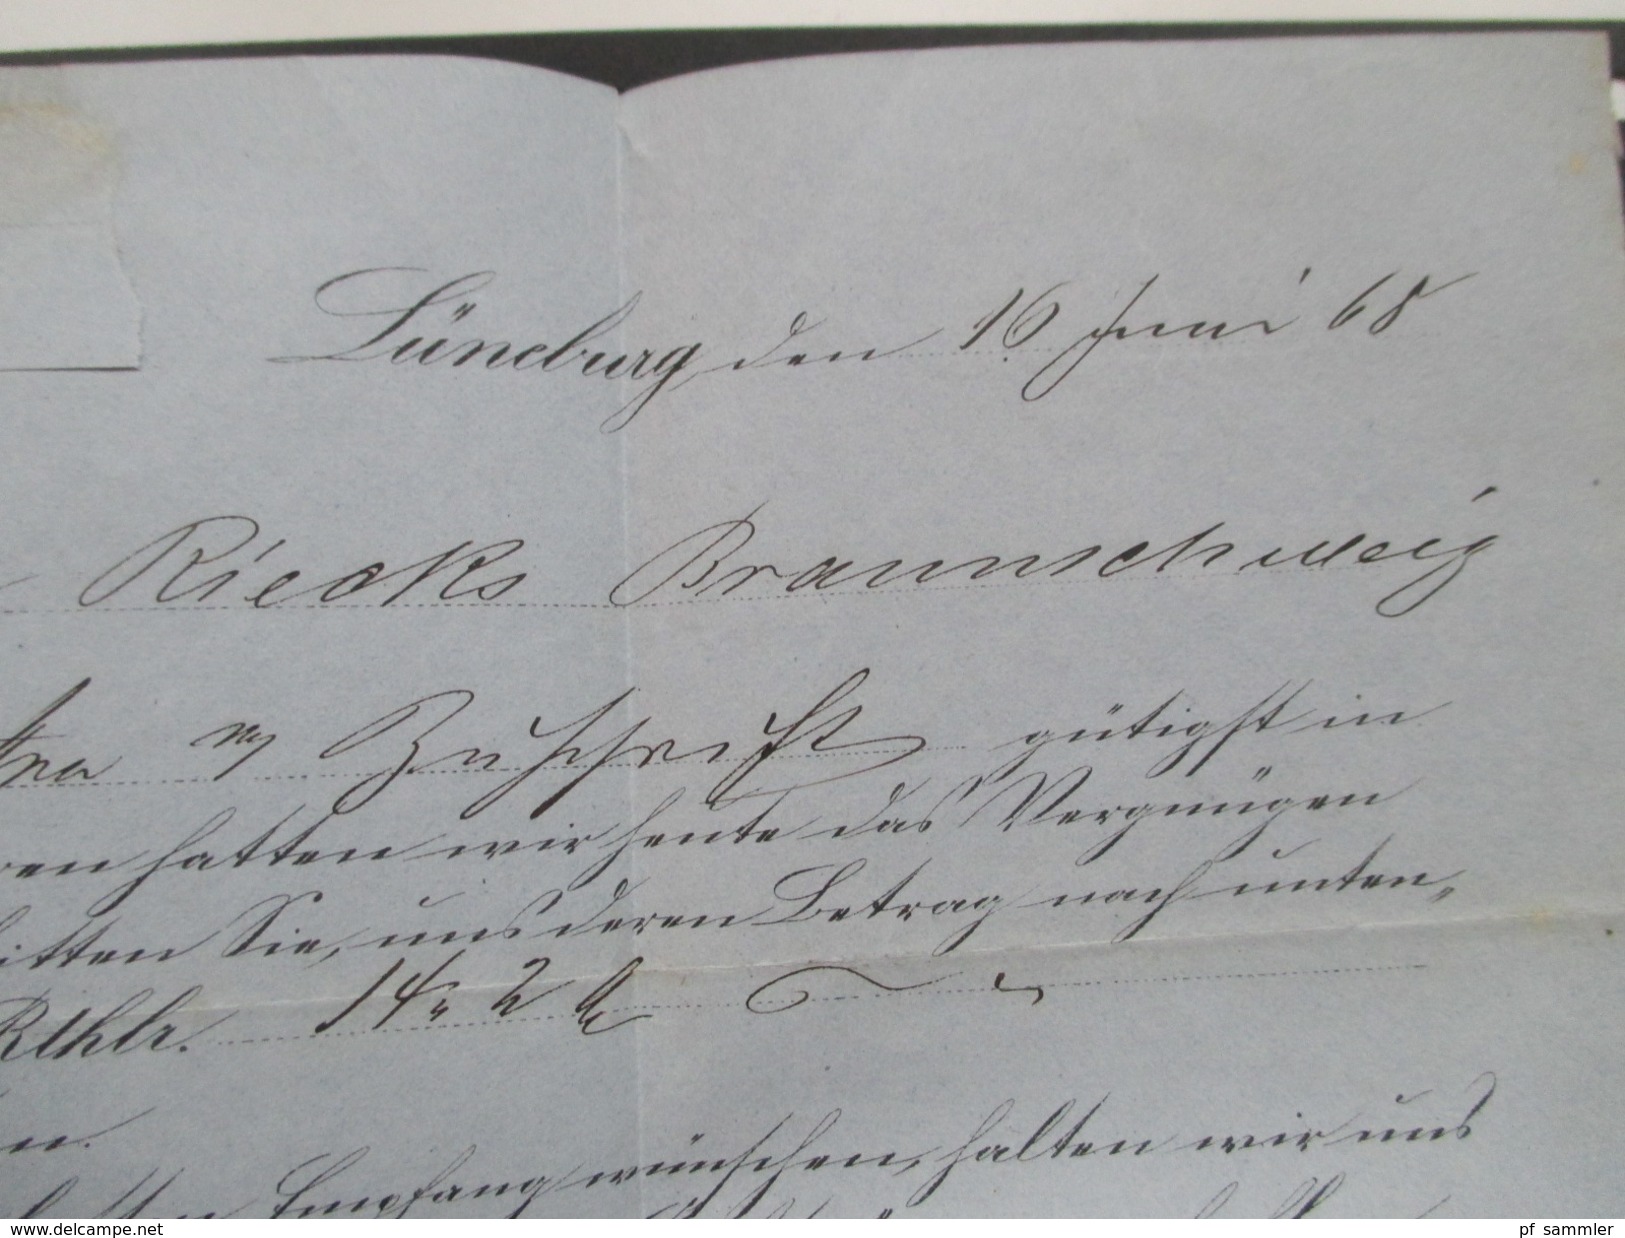 Lüneburg, den 16 Juni 68
Riecks Braunschweig
Zuschrift gütigst in
hatten wir heute das Vergnügen
Sie, uns deren Betrag nach unten„
Rthlr. 14„ 2
Empfang wünschen, halten wir uns
www.delcampe.net
pf_sammler